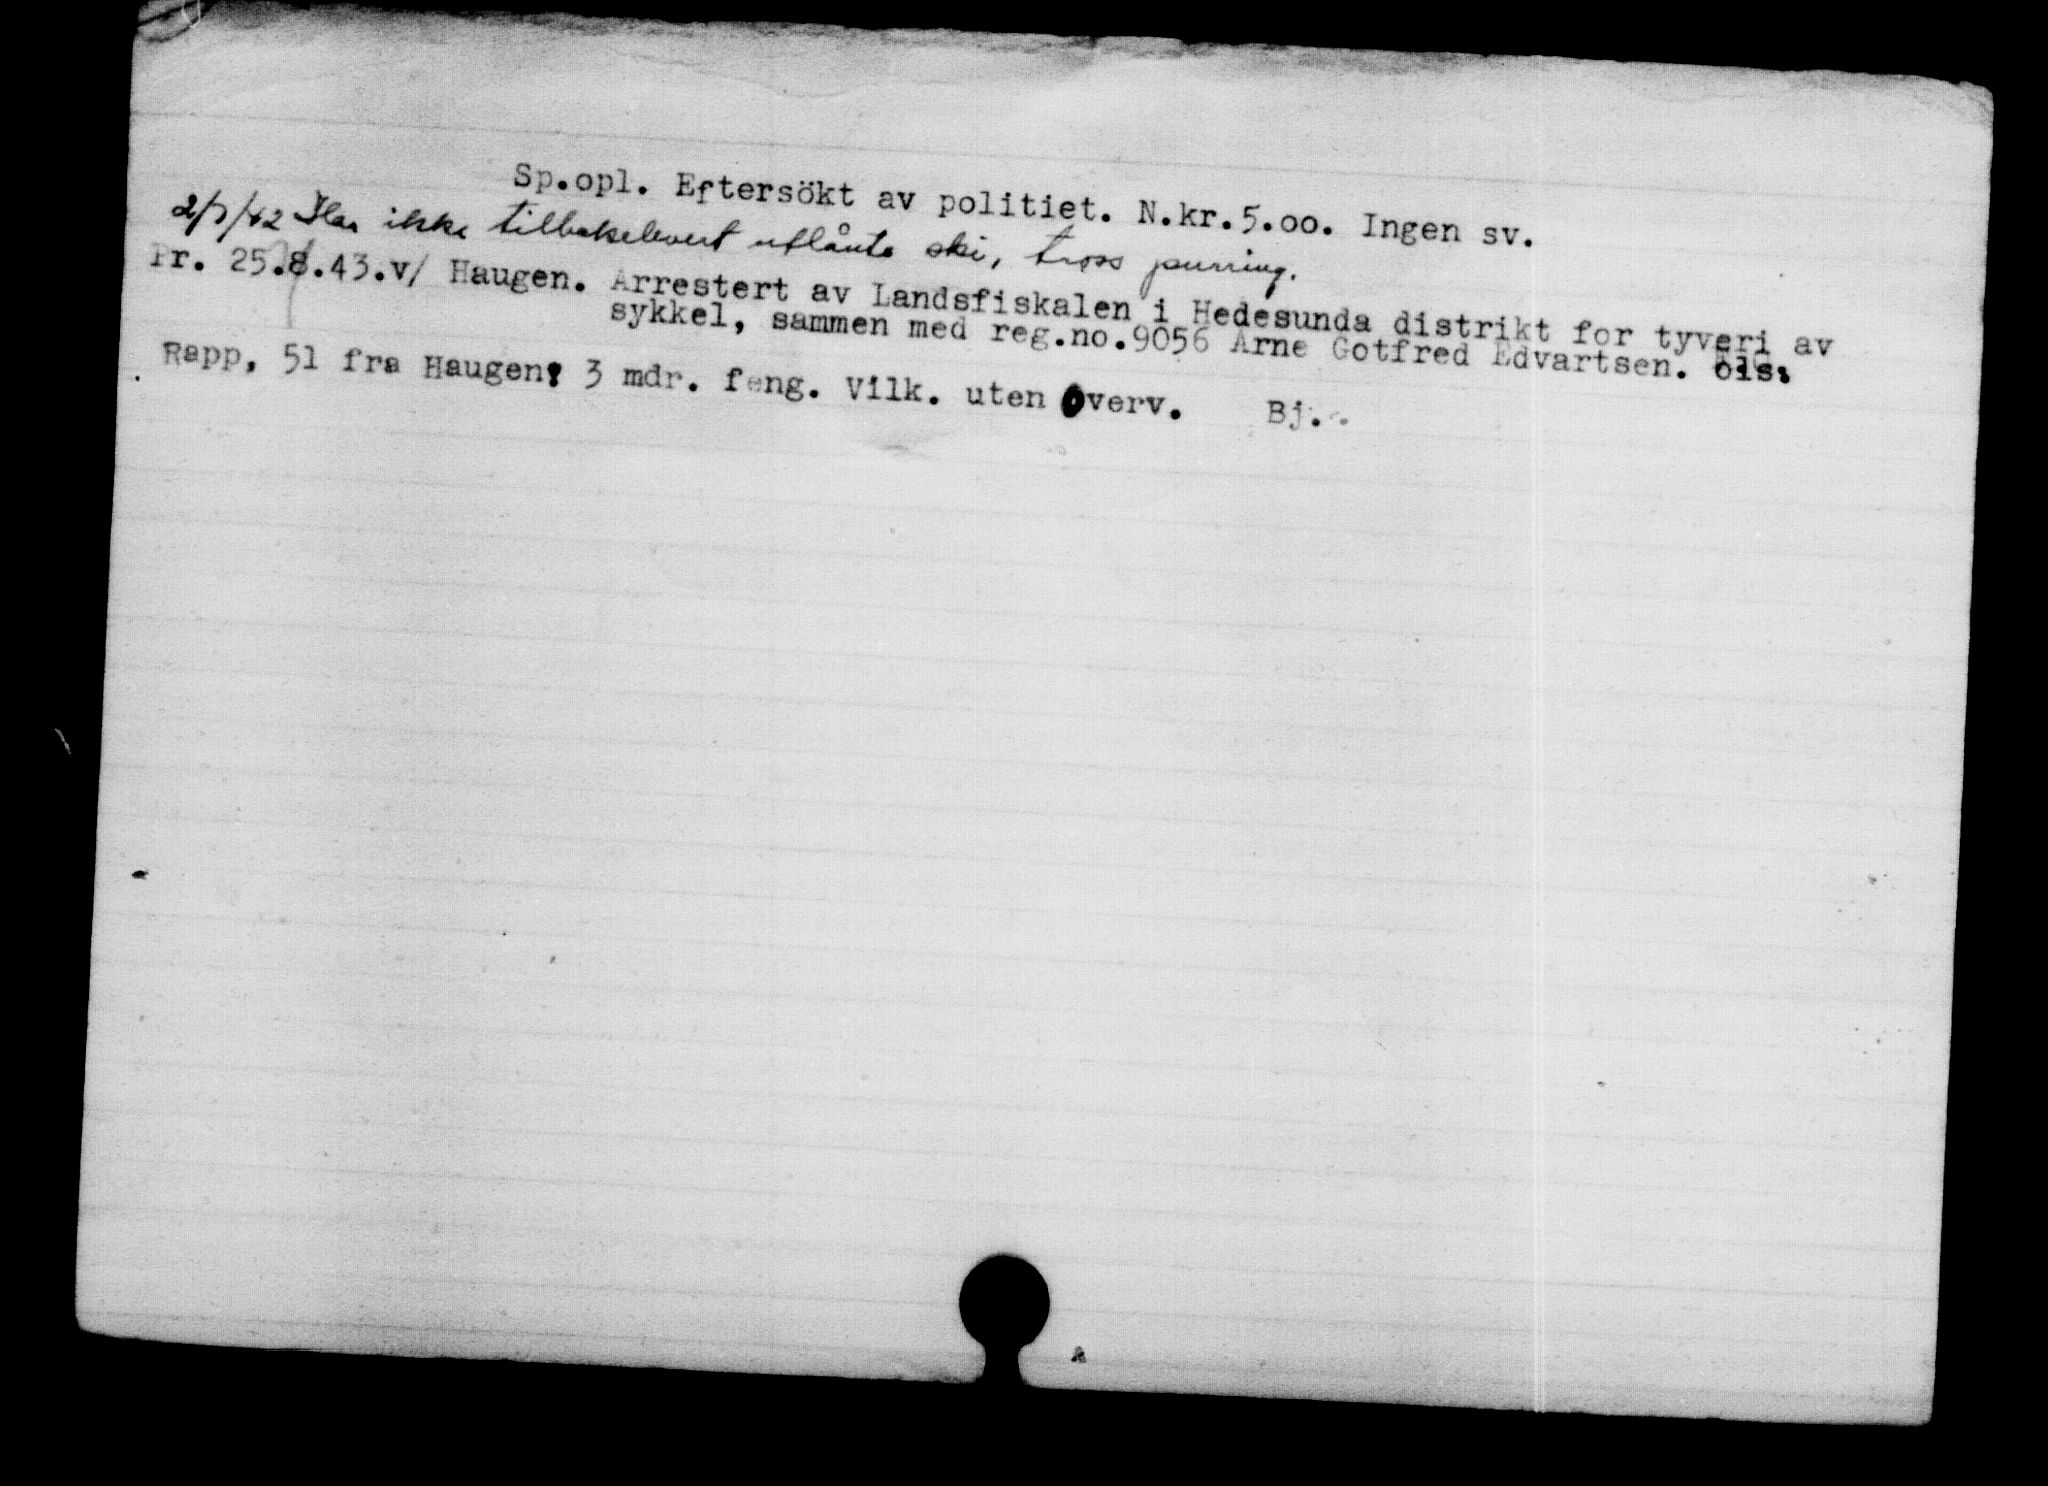 Sp.opl. Eftersökt av politiet. N.kr.5.oo. Ingen sv.
2/7/42 Har ikke tilbakelevert utlånte ski, tross purring.
Pr. 25.8.43.v/ Haugen. Arrestert av Landsfiskalen i Hedesunda distrikt for tyveri av
sykkel, sammen med reg.no.9056 Arne Gotfred Edvartsen. öls.
Rapp, 51 fra Haugen: 3 mdr. feng. Vilk. uten overv. Bj..